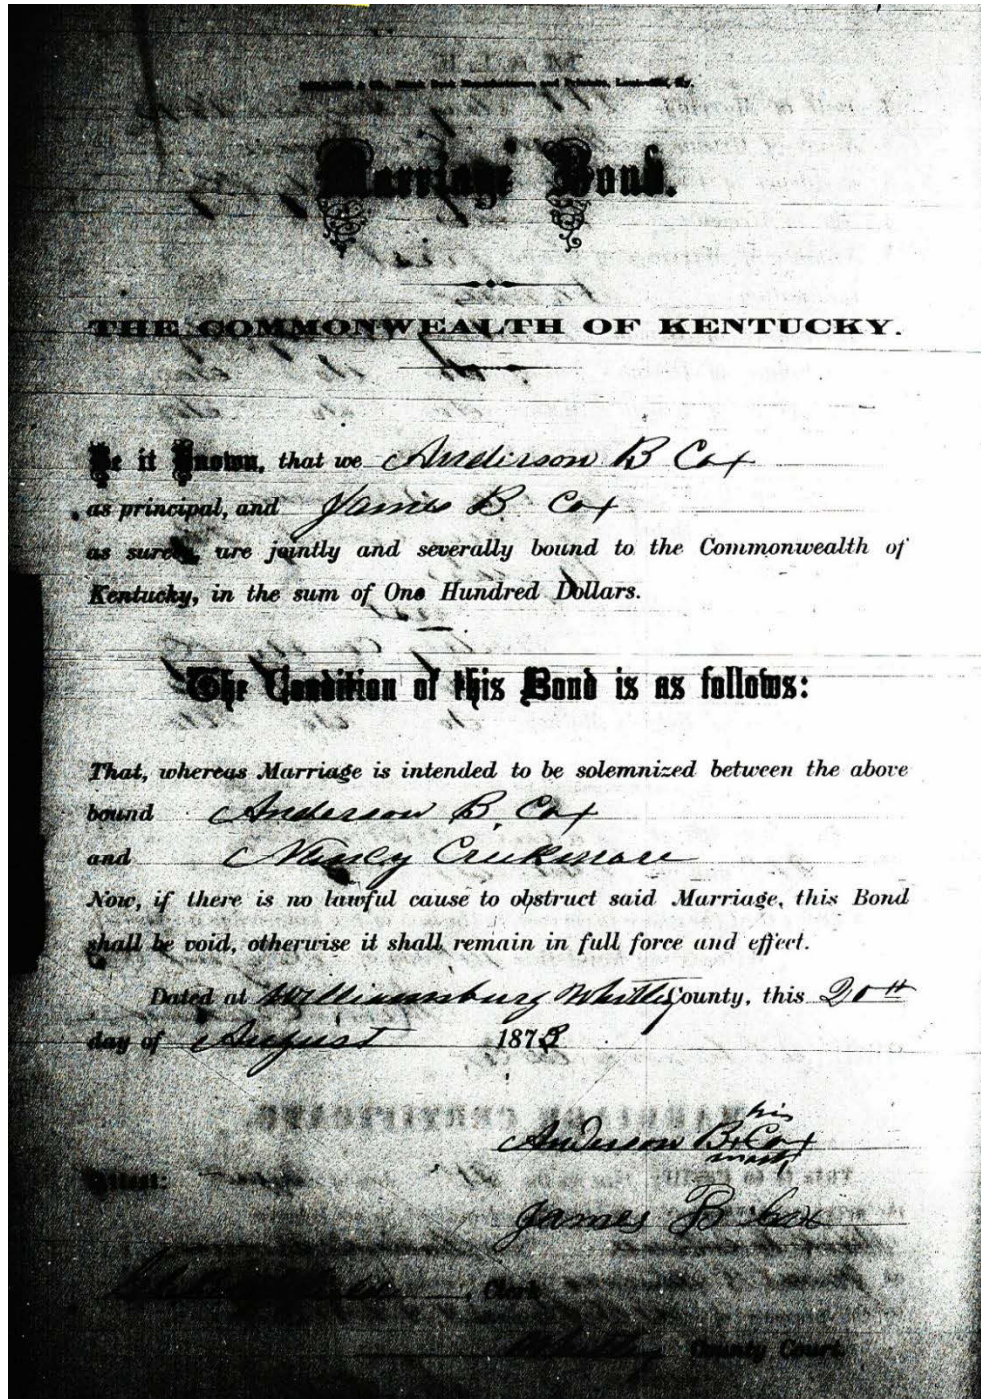 & Co., Blank Book Manufacturers and Printers, Louisville, Ky.
Marriage Bond.
THE COMMONWEALTH OF KENTUCKY.
Be it Known, that we Anderson B Cox
as principal, and James B. Cox
as surety, are jointly and severally bound to the Commonwealth of
Kentucky, in the sum of One Hundred Dollars.
The Condition of this Bond is as follows:
That, whereas Marriage is intended to be solemnized between the above
bound Anderson B. Cox
and Nancy Creekmore
Now, if there is no lawful cause to obstruct said Marriage, this Bond
shall be void, otherwise it shall remain in full force and effect.
Dated at Williamsburg Whitley County, this 20th
day of August 1873
his
Anderson B. Cox
mark
Attest:
James B Cox
, Clerk
Whitley County Court.